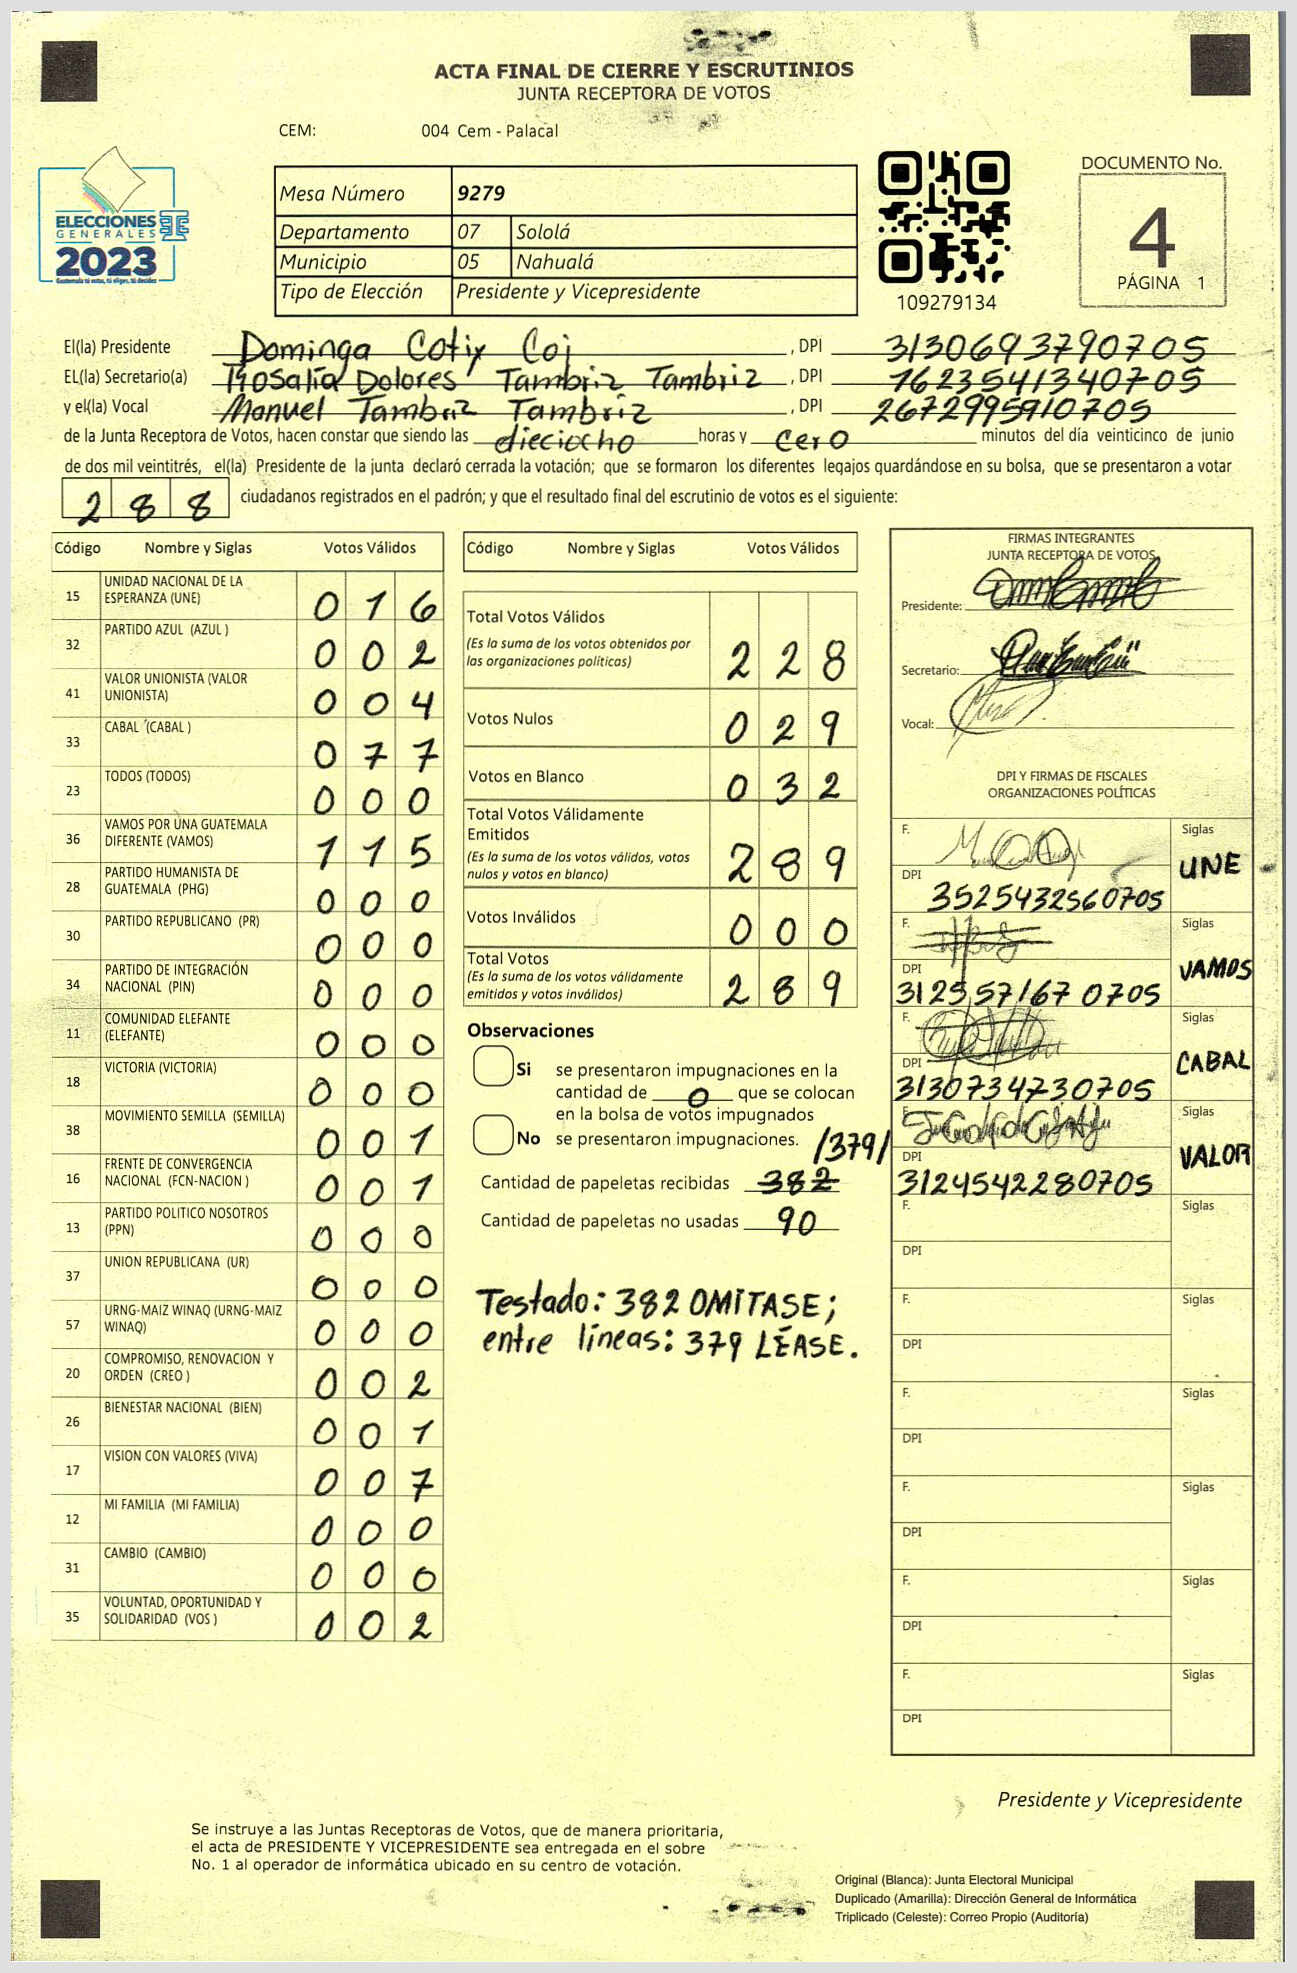 ACTA FINAL DE CIERRE Y ESCRUTINIOS
JUNTA RECEPTORA DE VOTOS
CEM: 004 Cem - Palacal
ELECCIONES
GENERALES
2023
Guatemala tú votas, tú eliges, tú decides
Mesa Número 9279
Departamento 07 Sololá
Municipio 05 Nahualá
Tipo de Elección Presidente y Vicepresidente
109279134
DOCUMENTO No.
4
PÁGINA 1
El(la) Presidente Dominga Cotiy Coj , DPI 3130693790705
EL(la) Secretario(a) Rosalía Dolores Tambriz Tambriz , DPI 1623541340705
y el(la) Vocal Manuel Tambriz Tambriz , DPI 2672995910705
de la Junta Receptora de Votos, hacen constar que siendo las dieciocho horas y cero minutos del día veinticinco de junio
de dos mil veintitrés, el(la) Presidente de la junta declaró cerrada la votación; que se formaron los diferentes legajos quardándose en su bolsa, que se presentaron a votar
288 ciudadanos registrados en el padrón; y que el resultado final del escrutinio de votos es el siguiente:
Código Nombre y Siglas Votos Válidos
15 UNIDAD NACIONAL DE LA
ESPERANZA (UNE) 0 1 6
32 PARTIDO AZUL (AZUL ) 0 0 2
41 VALOR UNIONISTA (VALOR
UNIONISTA) 0 0 4
33 CABAL (CABAL ) 0 7 7
23 TODOS (TODOS) 0 0 0
36 VAMOS POR UNA GUATEMALA
DIFERENTE (VAMOS) 1 1 5
28 PARTIDO HUMANISTA DE
GUATEMALA (PHG) 0 0 0
30 PARTIDO REPUBLICANO (PR) 0 0 0
34 PARTIDO DE INTEGRACIÓN
NACIONAL (PIN) 0 0 0
11 COMUNIDAD ELEFANTE
(ELEFANTE) 0 0 0
18 VICTORIA (VICTORIA) 0 0 0
38 MOVIMIENTO SEMILLA (SEMILLA) 0 0 1
16 FRENTE DE CONVERGENCIA
NACIONAL (FCN-NACION ) 0 0 1
13 PARTIDO POLITICO NOSOTROS
(PPN) 0 0 0
37 UNION REPUBLICANA (UR) 0 0 0
57 URNG-MAIZ WINAQ (URNG-MAIZ
WINAQ) 0 0 0
20 COMPROMISO, RENOVACION Y
ORDEN (CREO ) 0 0 2
26 BIENESTAR NACIONAL (BIEN) 0 0 1
17 VISION CON VALORES (VIVA) 0 0 7
12 MI FAMILIA (MI FAMILIA) 0 0 0
31 CAMBIO (CAMBIO) 0 0 0
35 VOLUNTAD, OPORTUNIDAD Y
SOLIDARIDAD (VOS ) 0 0 2
Código Nombre y Siglas Votos Válidos
Total Votos Válidos
(Es la suma de los votos obtenidos por
las organizaciones políticas) 2 2 8
Votos Nulos 0 2 9
Votos en Blanco 0 3 2
Total Votos Válidamente
Emitidos
(Es la suma de los votos válidos, votos
nulos y votos en blanco) 2 8 9
Votos Inválidos 0 0 0
Total Votos
(Es la suma de los votos válidamente
emitidos y votos inválidos) 2 8 9
Observaciones
Si se presentaron impugnaciones en la
cantidad de 0 que se colocan
en la bolsa de votos impugnados
No se presentaron impugnaciones.
/379/
Cantidad de papeletas recibidas 382
Cantidad de papeletas no usadas 90
Testado: 382 OMITASE;
entre líneas: 379 LÉASE.
FIRMAS INTEGRANTES
JUNTA RECEPTORA DE VOTOS
Presidente:
Secretario:
Vocal:
DPI Y FIRMAS DE FISCALES
ORGANIZACIONES POLÍTICAS
F. Siglas
UNE
DPI 3525432560705
F. Siglas
VAMOS
DPI 3125571670705
F. Siglas
CABAL
DPI 3130734730705
F. Siglas
VALOR
DPI 3124542280705
F. Siglas
DPI
F. Siglas
DPI
F. Siglas
DPI
F. Siglas
DPI
F. Siglas
DPI
F. Siglas
DPI
Presidente y Vicepresidente
Se instruye a las Juntas Receptoras de Votos, que de manera prioritaria,
el acta de PRESIDENTE Y VICEPRESIDENTE sea entregada en el sobre
No. 1 al operador de informática ubicado en su centro de votación.
Original (Blanca): Junta Electoral Municipal
Duplicado (Amarilla): Dirección General de Informática
Triplicado (Celeste): Correo Propio (Auditoría)